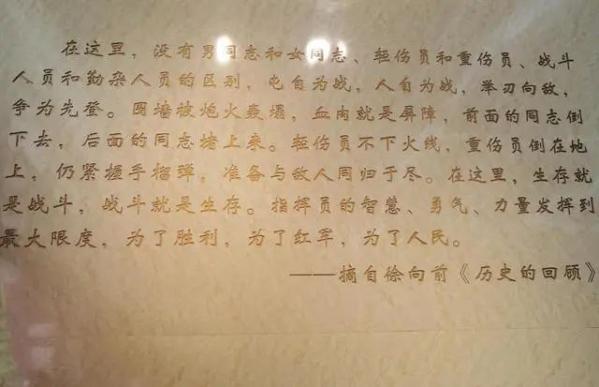 在这里，没有男同志和女同志、轻伤员和重伤员、战斗
人员和勤杂人员的区别，屯自为战，人自为战，举刃向敌，
争为先登。围墙被炮火轰塌，血肉就是屏障，前面的同志倒
下去，后面的同志堵上来。轻伤员不下火线，重伤员倒在地
上，仍紧握手榴弹，准备与敌人同归于尽。在这里，生存就
是战斗，战斗就是生存。指挥员的智慧、勇气、力量发挥到
最大限度，为了胜利，为了红军，为了人民。
——摘自徐向前《历史的回顾》